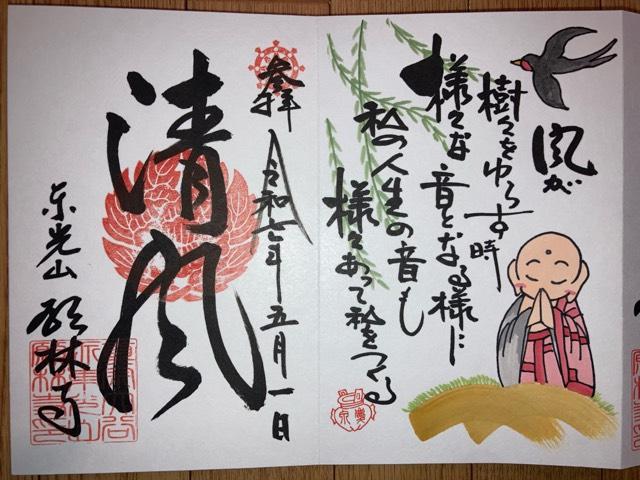 風が
樹々をゆらす時
様々な音となる様に
私の人生の音も
様々あって私をつくる
奉拝
令和七年五月一日
清風
東光山